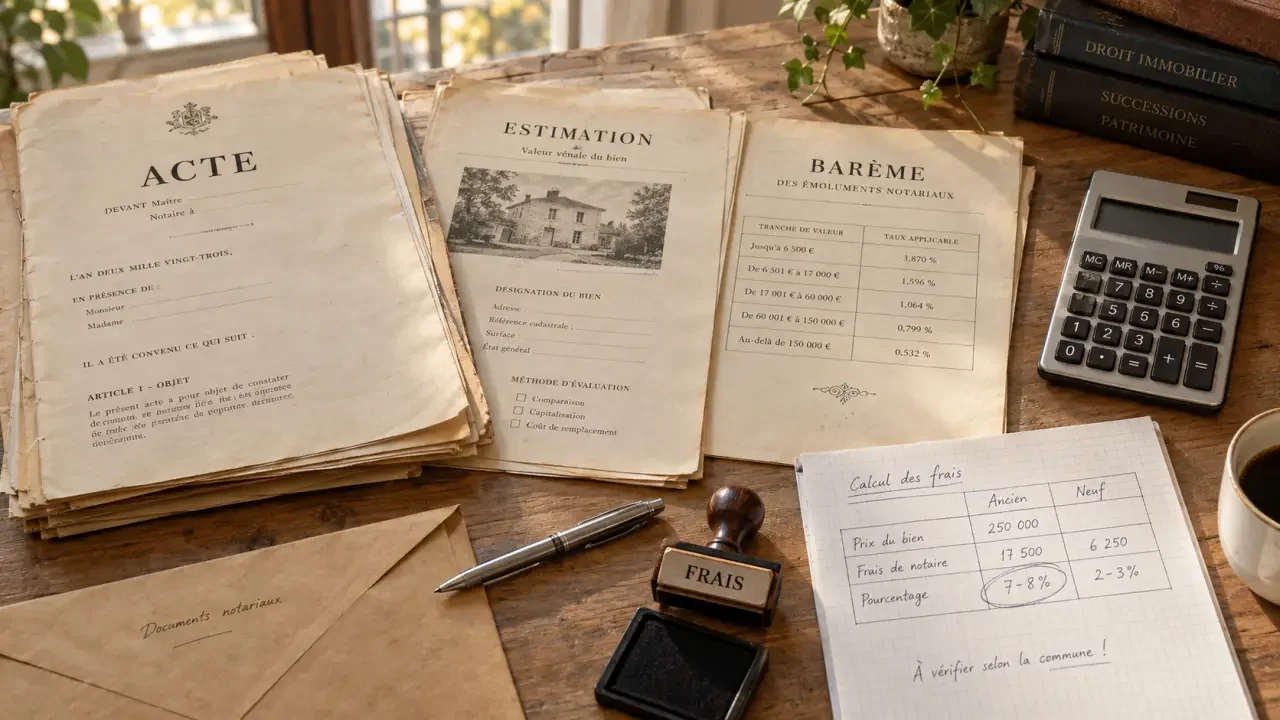 ACTE
DEVANT Maître
Notaire à
L'AN DEUX MILLE VINGT-TROIS,
EN PRÉSENCE DE :
Monsieur
Madame
IL A ÉTÉ CONVENU CE QUI SUIT :
ARTICLE 1 - OBJET
Le présent acte a pour objet de constater
ESTIMATION
Valeur vénale du bien
DÉSIGNATION DU BIEN
Adresse :
Référence cadastrale :
Surface :
État général :
MÉTHODE D'ÉVALUATION
Comparaison
Capitalisation
Coût de remplacement
BARÈME
DES ÉMOLUMENTS NOTARIAUX
TRANCHE DE VALEUR TAUX APPLICABLE
Jusqu'à 6 500 € 3,870 %
De 6 501 € à 17 000 € 1,596 %
De 17 001 € à 60 000 € 1,064 %
De 60 001 € à 150 000 € 0,799 %
Au-delà de 150 000 € 0,532 %
DROIT IMMOBILIER
SUCCESSIONS
PATRIMOINE
MC MR M- M+ %
7 8 9 ÷
4 5 6 -
1 2 3 + =
0 ·
Documents notariaux
FRAIS
Calcul des frais
Ancien Neuf
Prix du bien 250 000
Frais de notaire 17 500 6 250
Pourcentage 7-8% 2-3%
À vérifier selon la commune !